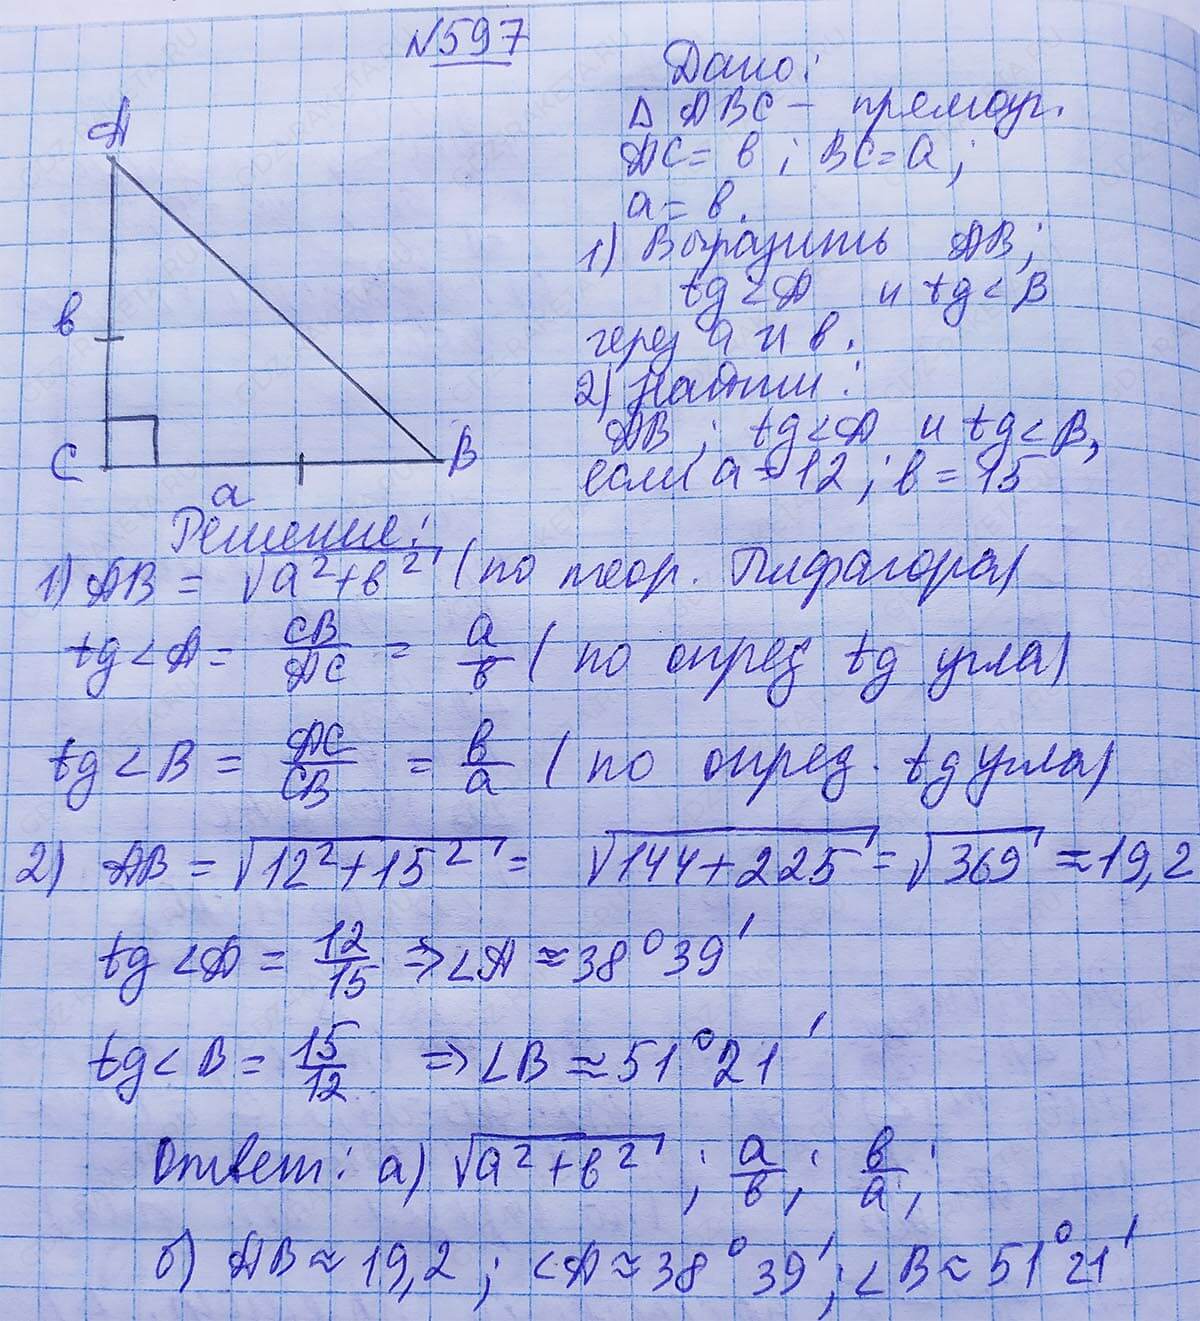 №597
Дано:
Δ ABC – прямоуг.
AC = в ; BC = a ;
a = в.
1) Выразить AB;
tg <A и tg < B
через a и в.
2) Найти:
AB ; tg <A и tg <B,
если a = 12 ; в = 15
A
в
C
B
a
Решение:
1) AB = √a²+в² (по теор. Пифагора)
tg <A = CB/AC = a/в (по опред tg угла)
tg <B = AC/CB = в/a (по опред. tg угла)
2) AB = √12²+15² = √144+225 = √369 ≈ 19,2
tg <A = 12/15 => <A ≈ 38°39'
tg < B = 15/12 => <B ≈ 51°21'
Ответ: a) √a²+в² ; a/в ; в/a ;
б) AB ≈ 19,2 ; <A ≈ 38°39' ; <B ≈ 51°21'